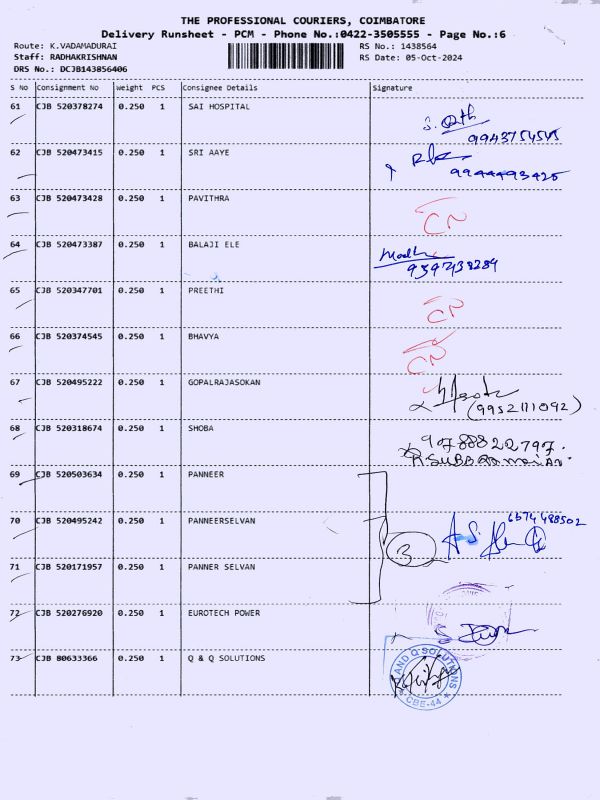 THE PROFESSIONAL COURIERS, COIMBATORE
Delivery Runsheet - PCM - Phone No.:0422-3505555 - Page No.:6
Route: K.VADAMADURAI
RS No.: 1438564
Staff: RADHAKRISHNAN
RS Date: 05-Oct-2024
DRS No.: DCJB143856406
S No Consignment No Weight PCS Consignee Details Signature
61 CJB 520378274 0.250 1 SAI HOSPITAL
9943754545
62 CJB 520473415 0.250 1 SRI AAYE
9944493425
63 CJB 520473428 0.250 1 PAVITHRA
CN
64 CJB 520473387 0.250 1 BALAJI ELE
Madh
9397438289
65 CJB 520347701 0.250 1 PREETHI
CN
66 CJB 520374545 0.250 1 BHAVYA
CN
67 CJB 520495222 0.250 1 GOPALRAJASOKAN
(9952111092)
68 CJB 520318674 0.250 1 SHOBA
9788822797.
69 CJB 520503634 0.250 1 PANNEER
70 CJB 520495242 0.250 1 PANNEERSELVAN
6574488502
3
71 CJB 520171957 0.250 1 PANNER SELVAN
72 CJB 520276920 0.250 1 EUROTECH POWER
73 CJB 80633366 0.250 1 Q & Q SOLUTIONS
AND Q SOLUTIONS
CBE-44